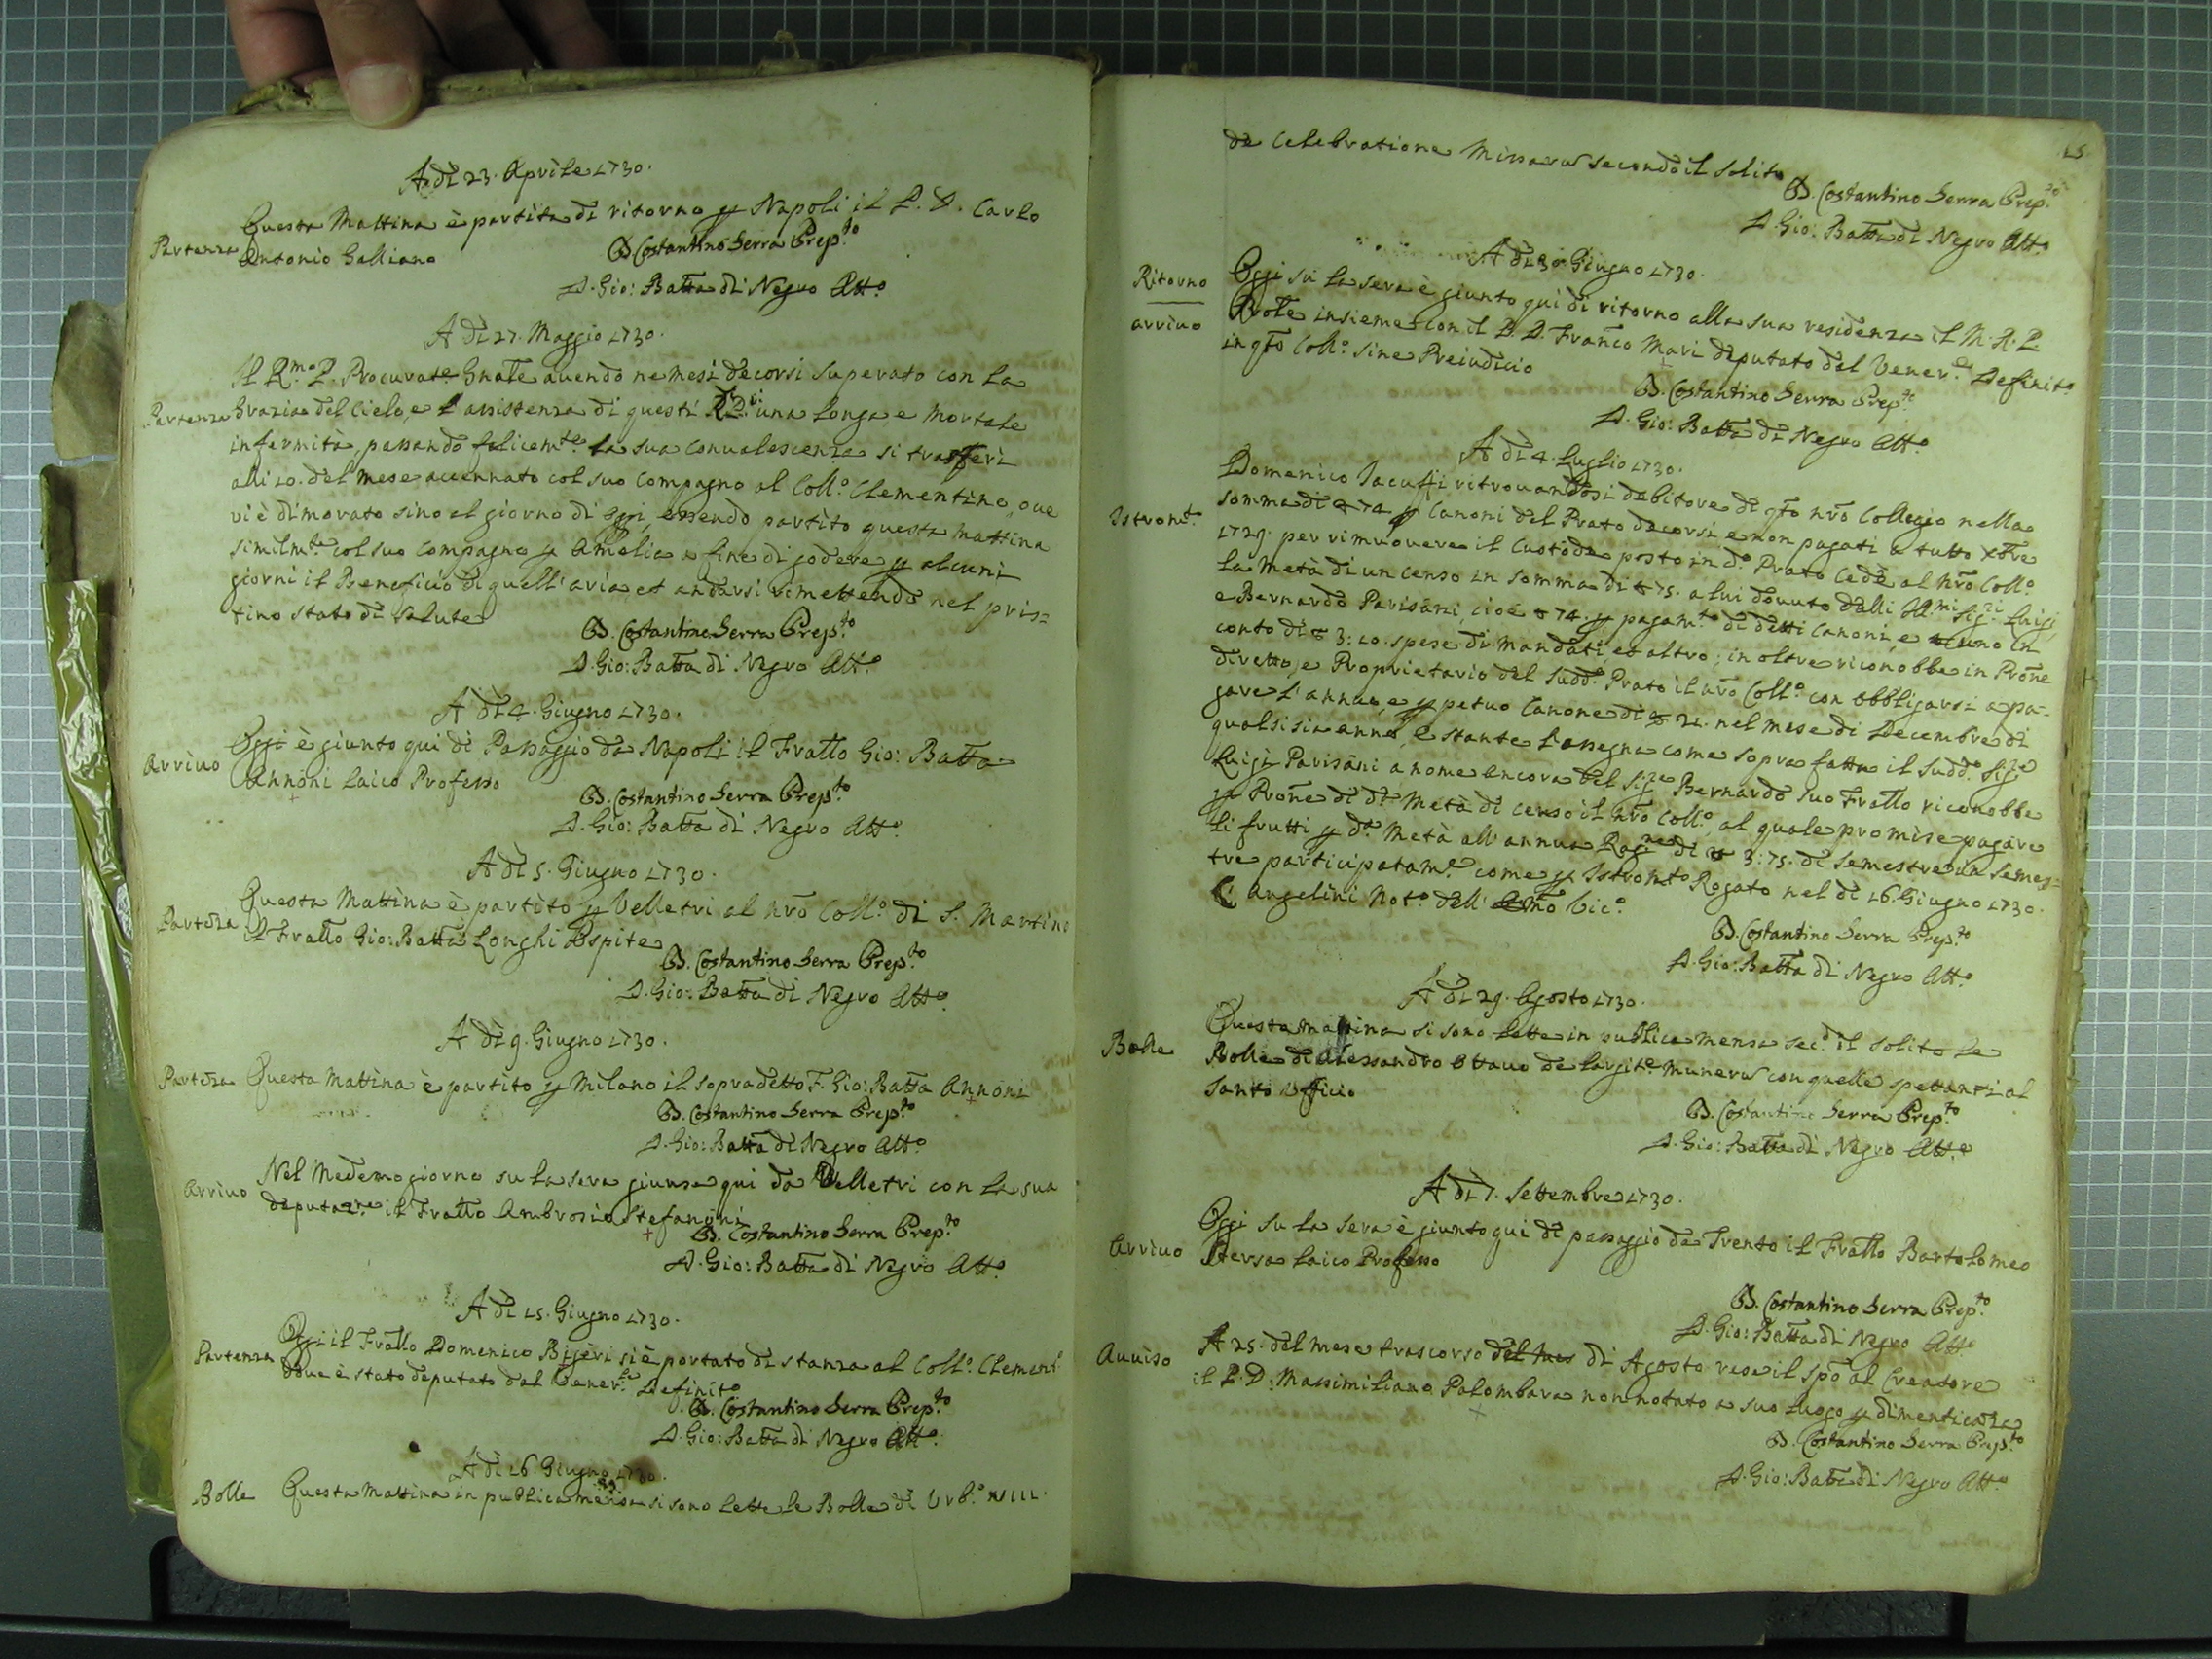 A dì 23. Aprile 1730.
Partenza
Questa Mattina è partito di ritorno p Napoli il P. D. Carlo
Antonio Galliano
D. Costantino Serra Prep.to
D. Gio: Batta di Negro Att.o
A dì 27. Maggio 1730.
Il R.mo P. Procurat.e Gnale avendo ne mesi decorsi superato con la
Partenza
Grazia del Cielo, e l'assistenza di questi una longa, e mortale
infermità, passando felicem.te la sua convalescenza si trasferì
alli 10. del mese accennato col suo Compagno al Coll.o Clementino, ove
vi è dimorato sino al giorno di oggi, essendo partito questa mattina
similm.te col suo compagno p Amelia a fine di godere p alcuni
giorni il Beneficio di quell'aria et andarsi rimettendo nel pris=
tino stato di salute
D. Costantino Serra Prep.to
D. Gio: Batta di Negro Att.o
A dì 4. Giugno 1730.
Arrivo
Oggi è giunto qui di Passaggio da Napoli il Fratto Gio: Batta
Annoni Laico Professo
D. Costantino Serra Prep.to
D. Gio: Batta di Negro Att.o
A dì 5. Giugno 1730.
Partenza
Questa Mattina è partito p Velletri al nro Coll.o di S. Martino
il Fratto Gio: Batta Longhi Ospite
D. Costantino Serra Prep.to
D. Gio: Batta di Negro Att.o
A dì 9. Giugno 1730.
Partenza
Questa Mattina è partito p Milano il sopradetto F. Gio: Batta Annoni
D. Costantino Serra Prep.to
D. Gio: Batta di Negro Att.o
Arrivo
Nel Medemo giorno su la sera giunse qui da Velletri con la sua
deputaz.ne il Fratto Ambrosio Stefanini
D. Costantino Serra Prep.to
D. Gio: Batta di Negro Att.o
A dì 15. Giugno 1730.
Partenza
Oggi il Fratto Domenico Bigeri si è portato di stanza al Coll.o Clement.o
dove è stato deputato dal Vener.le Definit.o
D. Costantino Serra Prep.to
D. Gio: Batta di Negro Att.o
A dì 16. Giugno 1730.
Bolle
Questa Mattina in publica mensa si sono lette le Bolle di Urb.o VIII.
15.
de Celebratione Missaru secondo il solito
D. Costantino Serra Prep.to
D. Gio: Batta di Negro Att.o
A dì 30. Giugno 1730.
Ritorno
Oggi su la sera è giunto qui di ritorno alla sua residenza il M. R. P.
arrivo
Prole insieme con il P. D. Franco Mari deputato dal Vener.le Definit.o
in qto Coll.o sine Preiudicio
D. Costantino Serra Prep.to
D. Gio: Batta di Negro Att.o
A dì 4. Luglio 1730.
Domenico Iacussi ritrovandosi debitore di qto nro Collegio nella
Istrom.to
somma di 74 p Canoni del Prato decorsi e non pagati a tutto xbre
1729. per rimuovere il Custode posto in d.o Prato cedè al nro Coll.o
la metà di un censo in somma di 75. a lui dovuto dalli Ill.mi Sig.ri Luigi,
e Bernardo Parisani, cioè 74. p pagam.to di detti Canoni, e uno in
conto di 3:10. spese di Mandati, et altro; in oltre riconobbe in Prone
diretto, e Proprietario del sudd.o Prato il nro Coll.o con obbligarsi a pa=
gare l'annuo, e ppetuo Canone di 21. nel mese di Decembre di
qualsisia anno, e stante l'assegna come sopra fatta il sudd.o Sig.re
Luigi Parisani a nome ancora del Sig.re Bernardo suo Fratto riconobbe
p Prone di d.a Metà di censo il nro Coll.o, al quale promise pagare
li frutti p d.a Metà all'annua Rag.ne di 3:75. di semestre in semes=
tre participatam.e come p Istrom.to Rogato nel dì 16. Giugno 1730.
Angelini Not.o dell' Vic.o
D. Costantino Serra Prep.to
D. Gio: Batta di Negro Att.o
A dì 29. Agosto 1730.
Bolle
Questa mattina si sono lette in publica mensa sec.o il solito le
Bolle di Alessandro Ottavo de largit.e muneru con quelle spettanti al
Santo Officio
D. Costantino Serra Prep.to
D. Gio: Batta di Negro Att.o
A dì 7. Settembre 1730.
Arrivo
Oggi su la sera è giunto qui di passaggio da Trento il Fratto Bartolomeo
Stersa Laico Professo
D. Costantino Serra Prep.to
D. Gio: Batta di Negro Att.o
Avviso
A 25. del mese trascorso del mes di Agosto rese il Spo al Creatore
il P. D. Massimiliano Palombara non notato a suo luogo p dimenticanza
D. Costantino Serra Prep.to
D. Gio: Batta di Negro Att.o